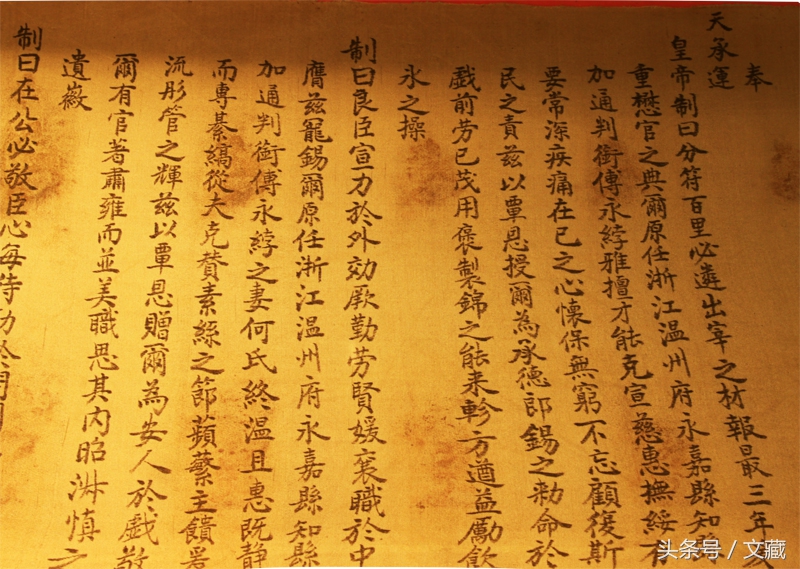 奉
天承運
皇帝制曰分符百里必遴出宰之材報最三年
重懋官之典爾原任浙江温州府永嘉縣知縣
加通判銜傅永綍雅擅才能克宣慈惠撫綏有
要常深疾痛在已之心懷保無窮不忘顧復斯
民之責茲以覃恩授爾為承德郎錫之勅命於
戲前勞已茂用褒製錦之能来軫方遒益勵飲
氷之操
制曰良臣宣力於外効厥勤勞賢媛襄職於中
膺茲寵錫爾原任浙江温州府永嘉縣知縣
加通判銜傅永綍之妻何氏終温且惠既静
而專綦縞從夫克賛素絲之節蘋蘩主饋爰
流彤管之輝茲以覃恩贈爾為安人於戲敬
爾有官著肅雍而並美職思其内昭淋慎之
遺徽
制曰在公必敬臣心每待
头条号 / 文藏